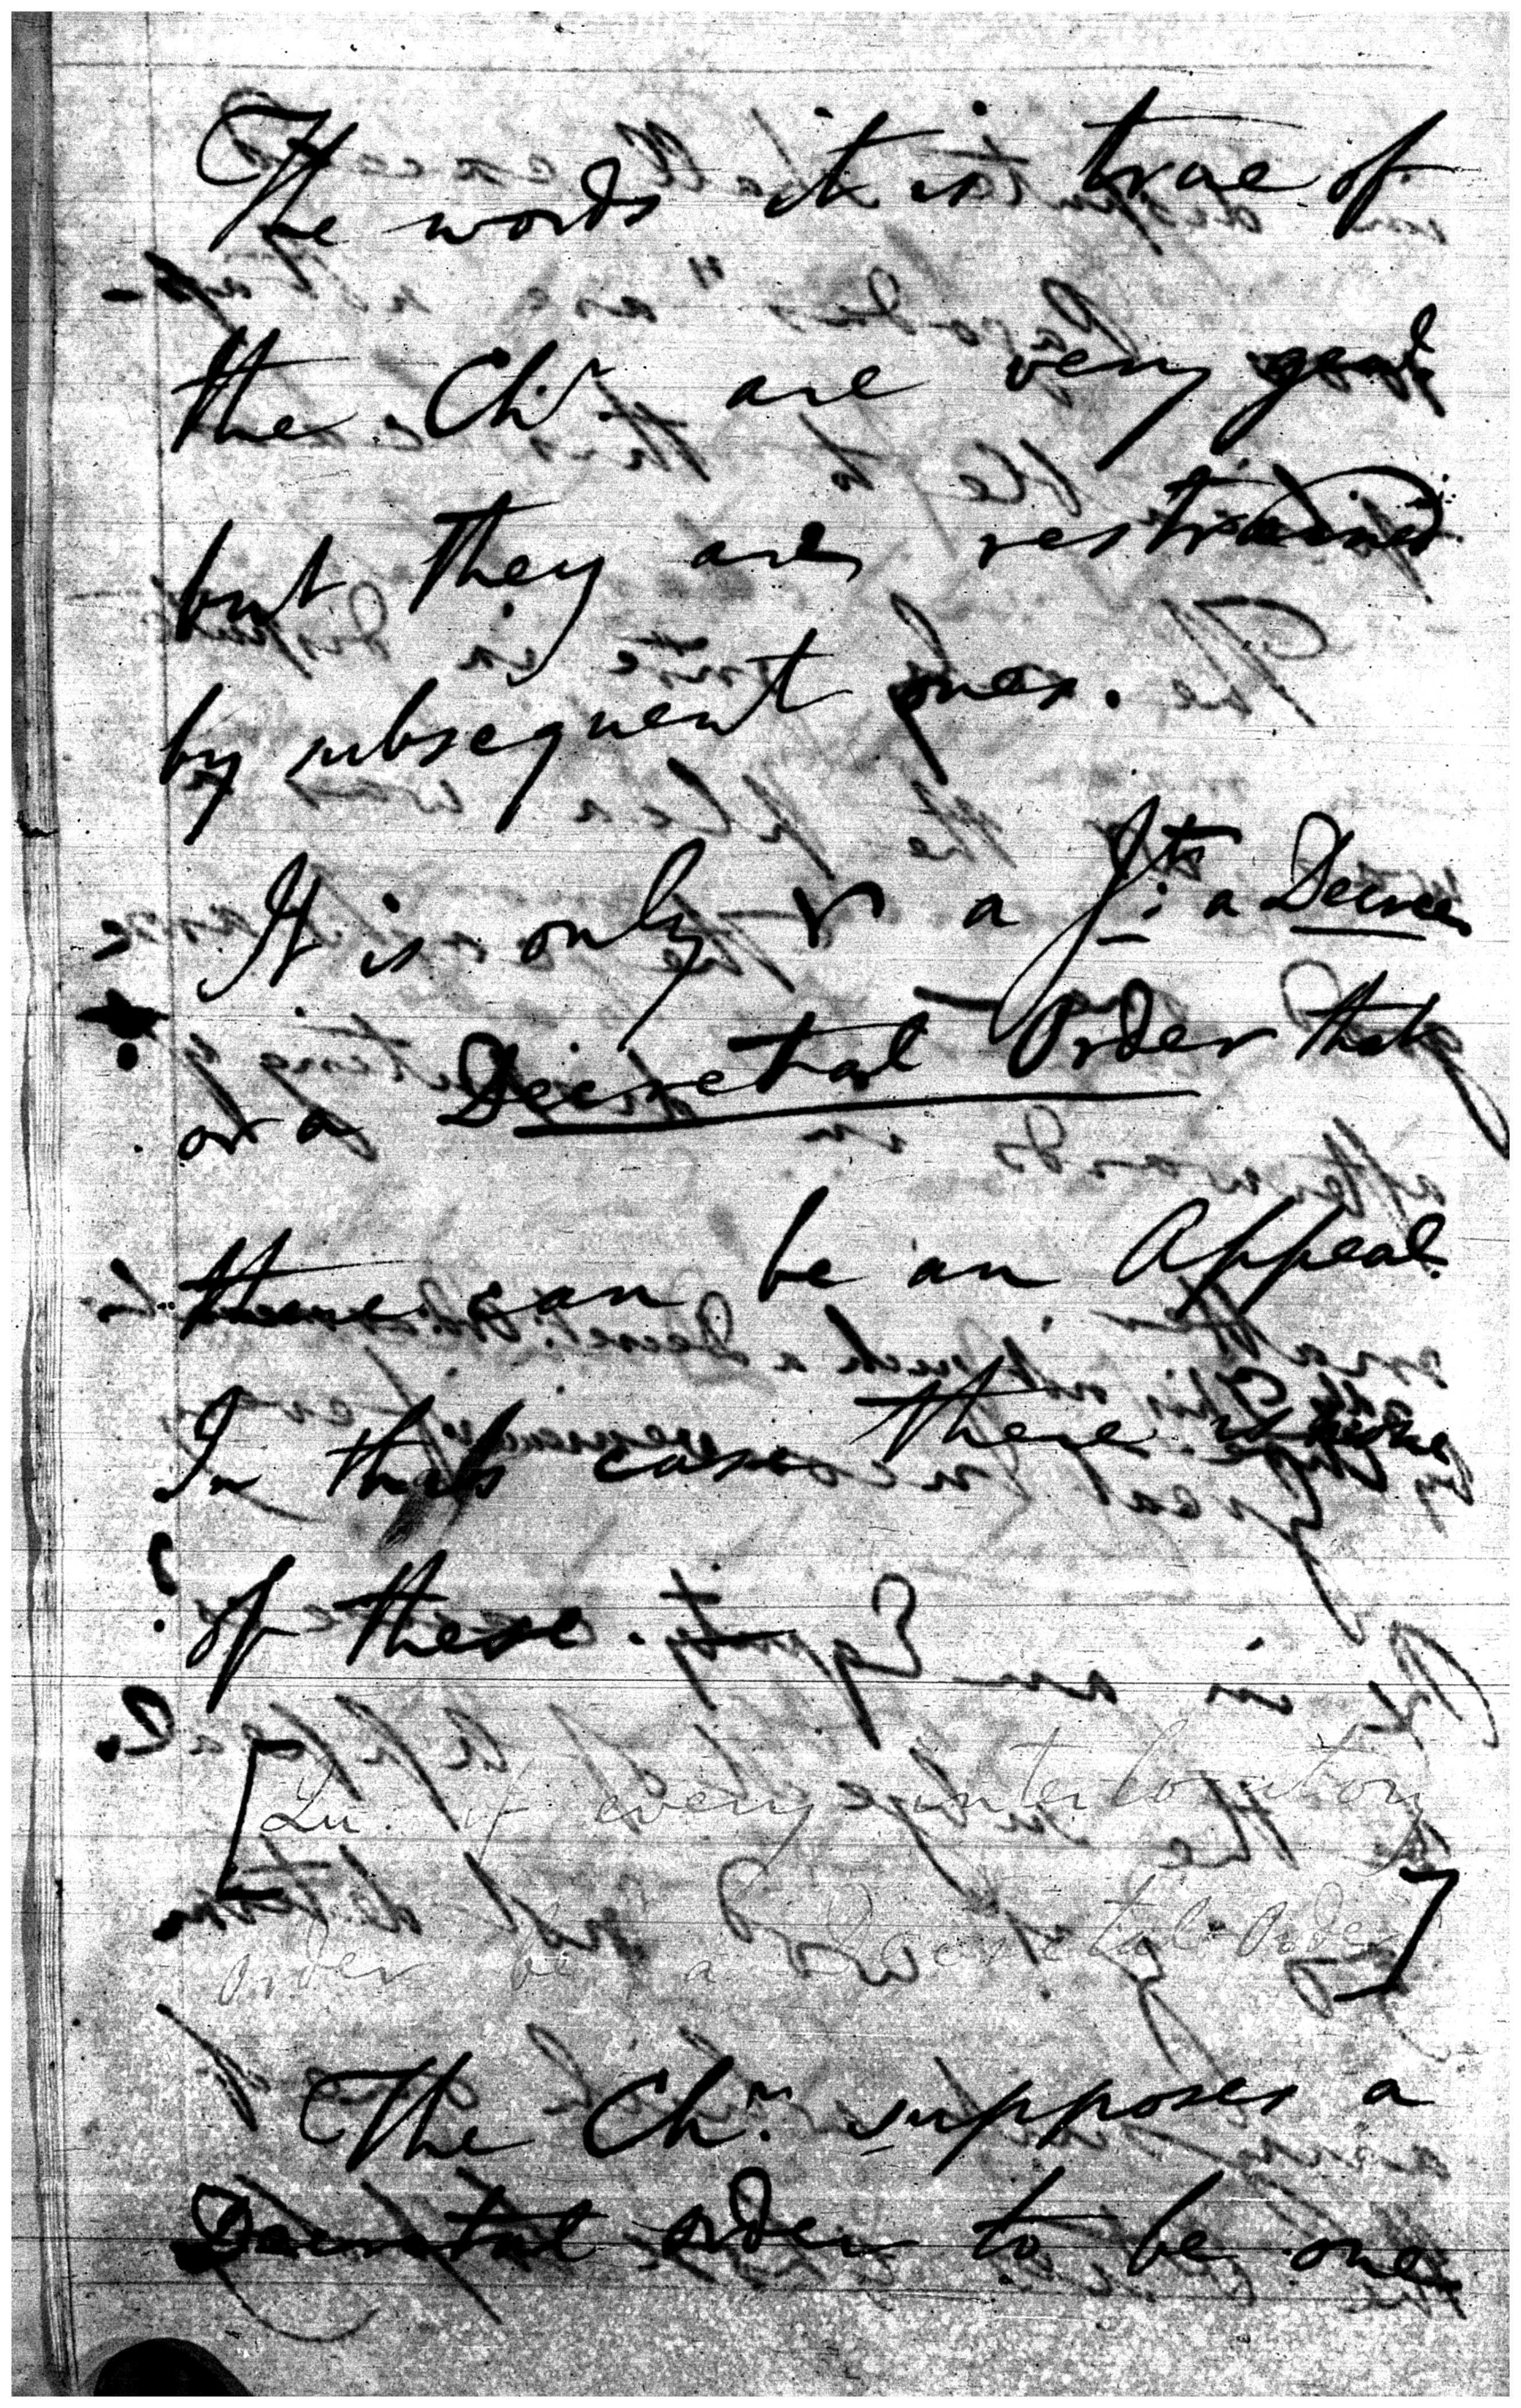 The words it is true of
the Chr. are very genl
but they are restrained
by subsequent ones.
It is only fr a Jt: a Decree
or a Decretal Order that
there can be an Appeal.
In this case there is none
of these.
[Qu. if every interlocutory
Order be a Decretal Order]
The Chr. supposes a
Decretal order to be one